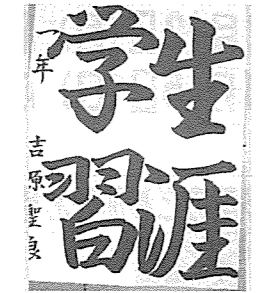 生涯
学習
一年
吉原聖良